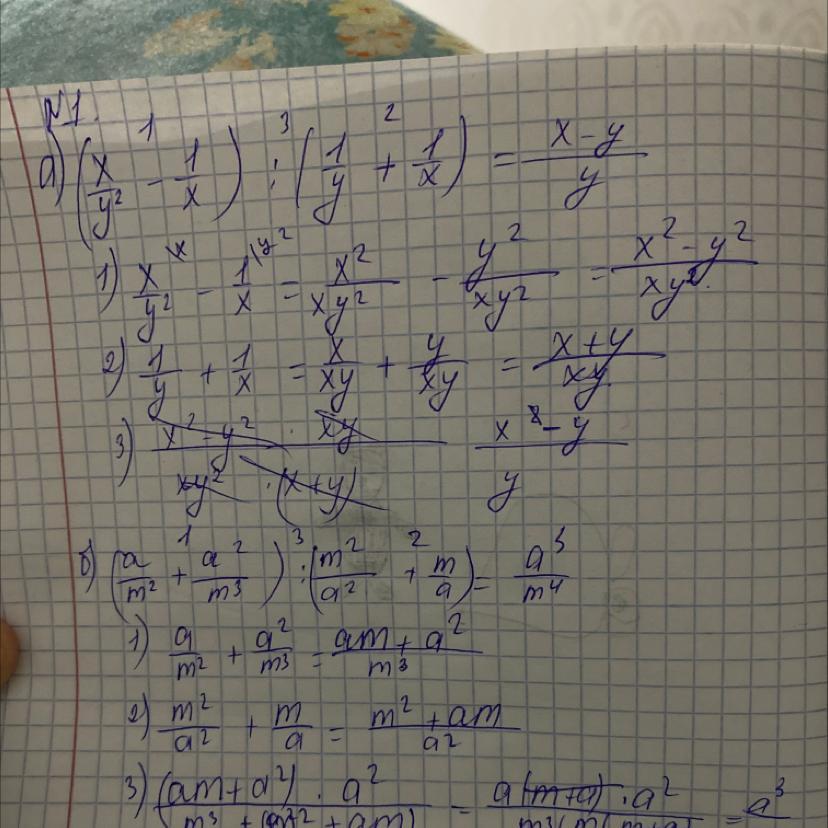 №1.
1 3 2
а) (x/y² - 1/x) : (1/y + 1/x) = (x-y)/y
1) x/y² \x - 1/x \y² = x²/xy² - y²/xy² = (x² - y²)/xy².
2) 1/y + 1/x = x/xy + y/xy = (x+y)/xy.
3) (x² - y²) · xy / xy² · (x+y) (x - y)/y
1 3 2
б) (a/m² + a²/m³) : (m²/a² + m/a) = a³/m⁴
1) a/m² + a²/m³ = (am + a²)/m³
2) m²/a² + m/a = (m² + am)/a²
3) (am+a²) · a² / = a(m+a) · a² / = a³